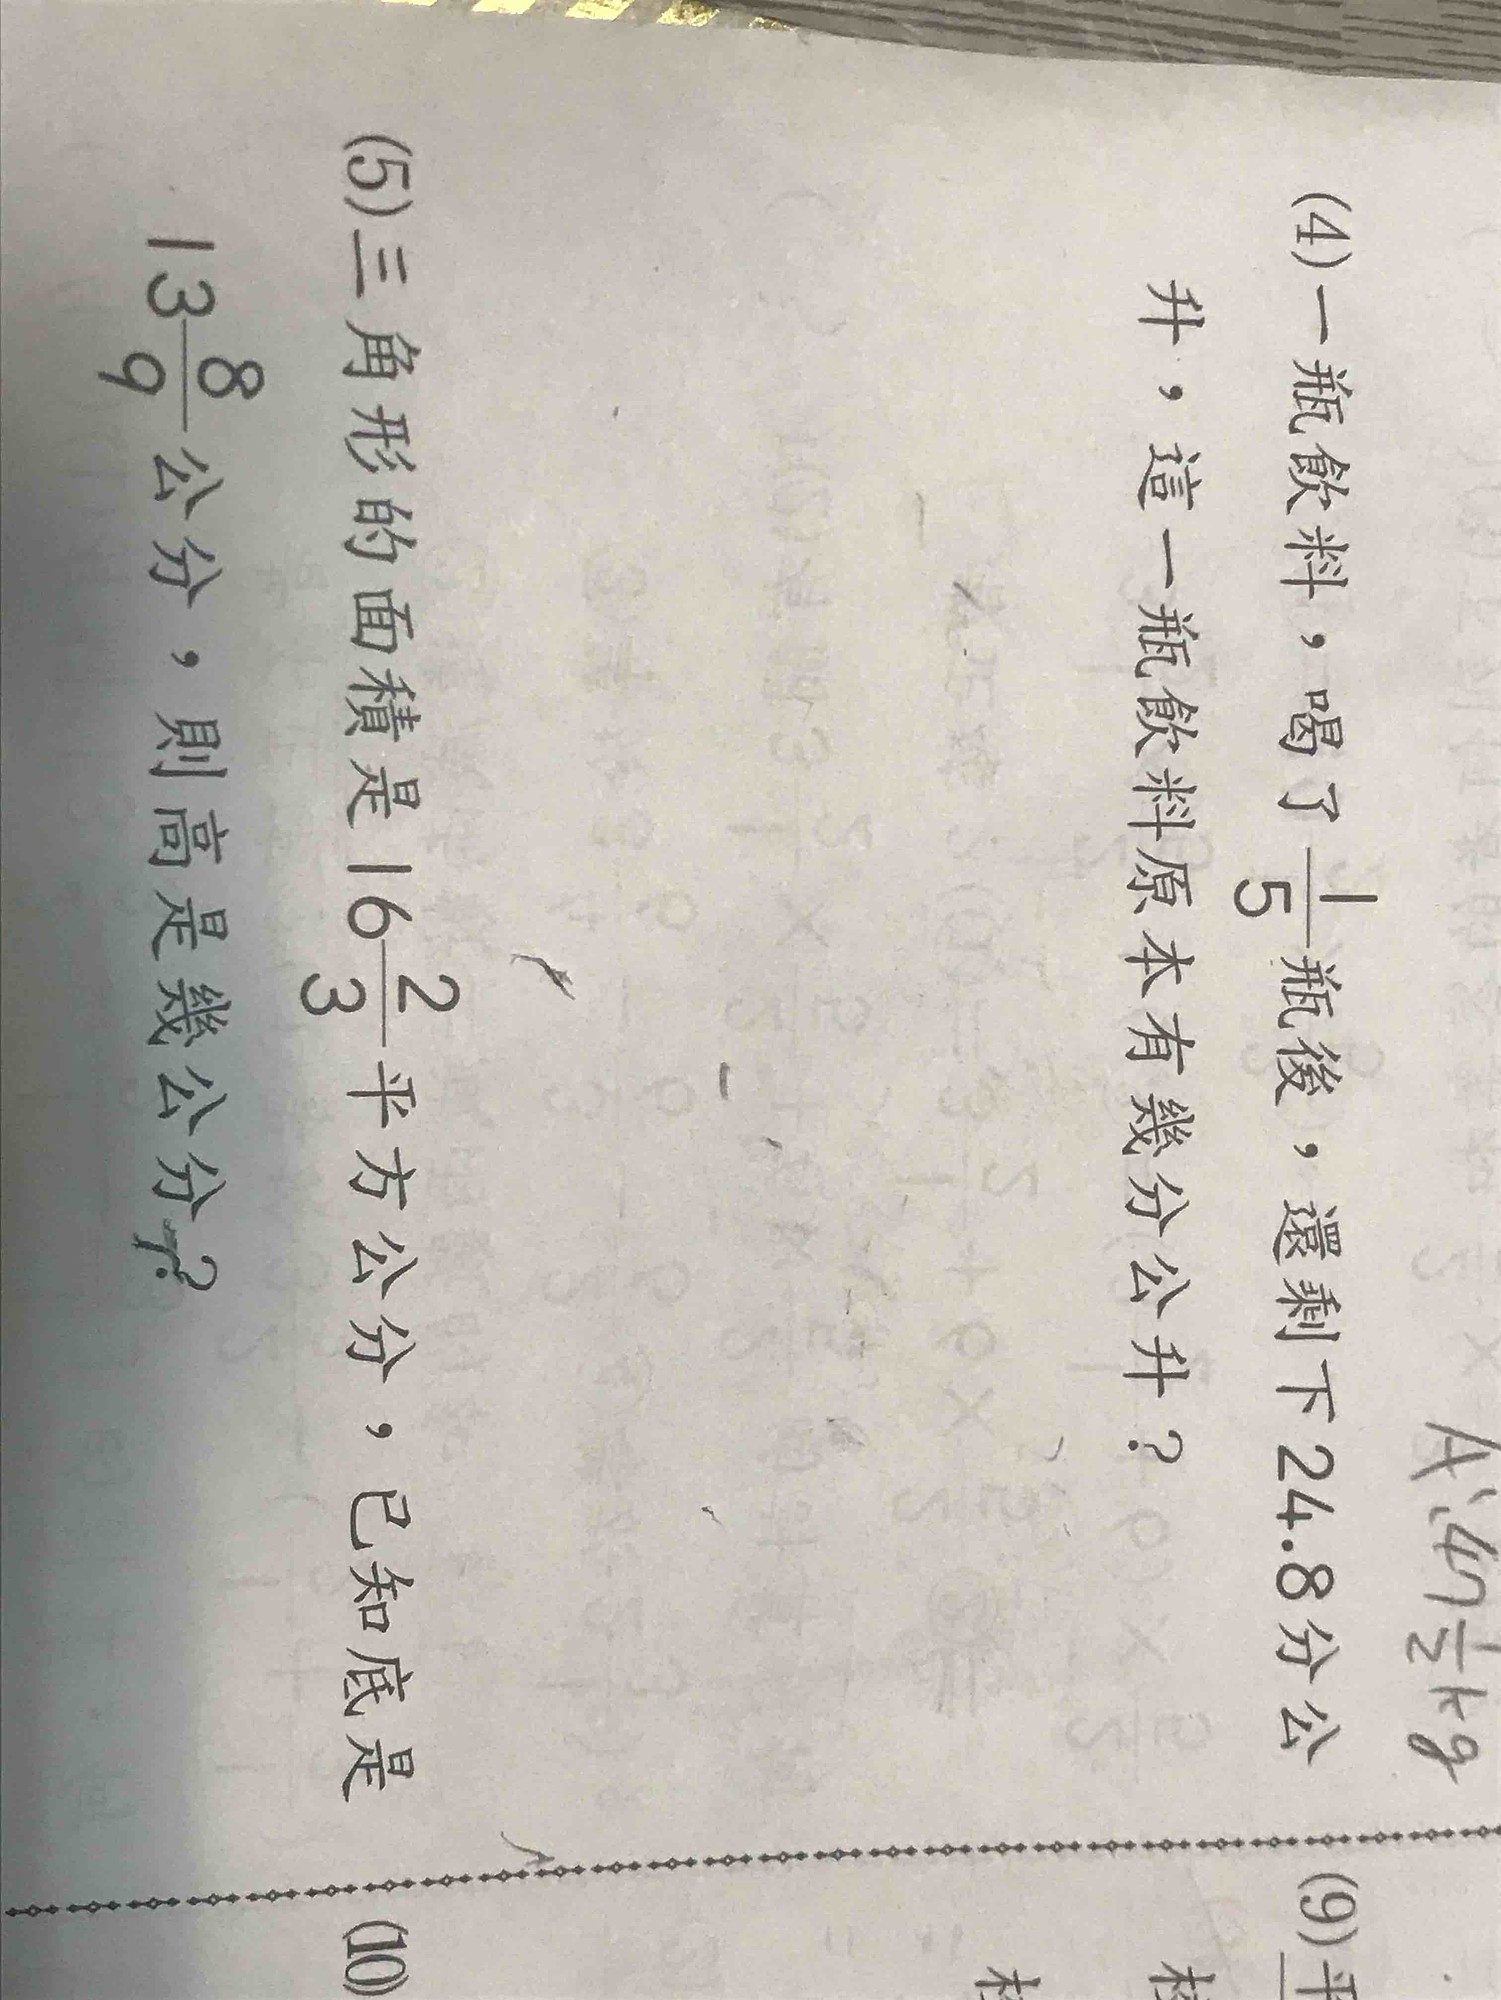 A:4 1/2 kg
(4)一瓶飲料，喝了1/5瓶後，還剩下24.8分公
升，這一瓶飲料原本有幾分公升？
(5)三角形的面積是16 2/3平方公分，已知底是
13 8/9公分，則高是幾公分？
(9)平
(10)